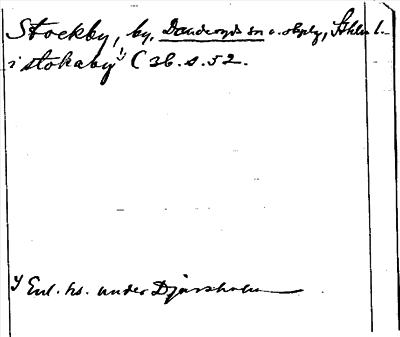 Stockby, by, Danderyds sn o. skplg, Sthlms l.
i stokaby 1) (3b. s. 52.
1) Enl. hs. under Djursholm